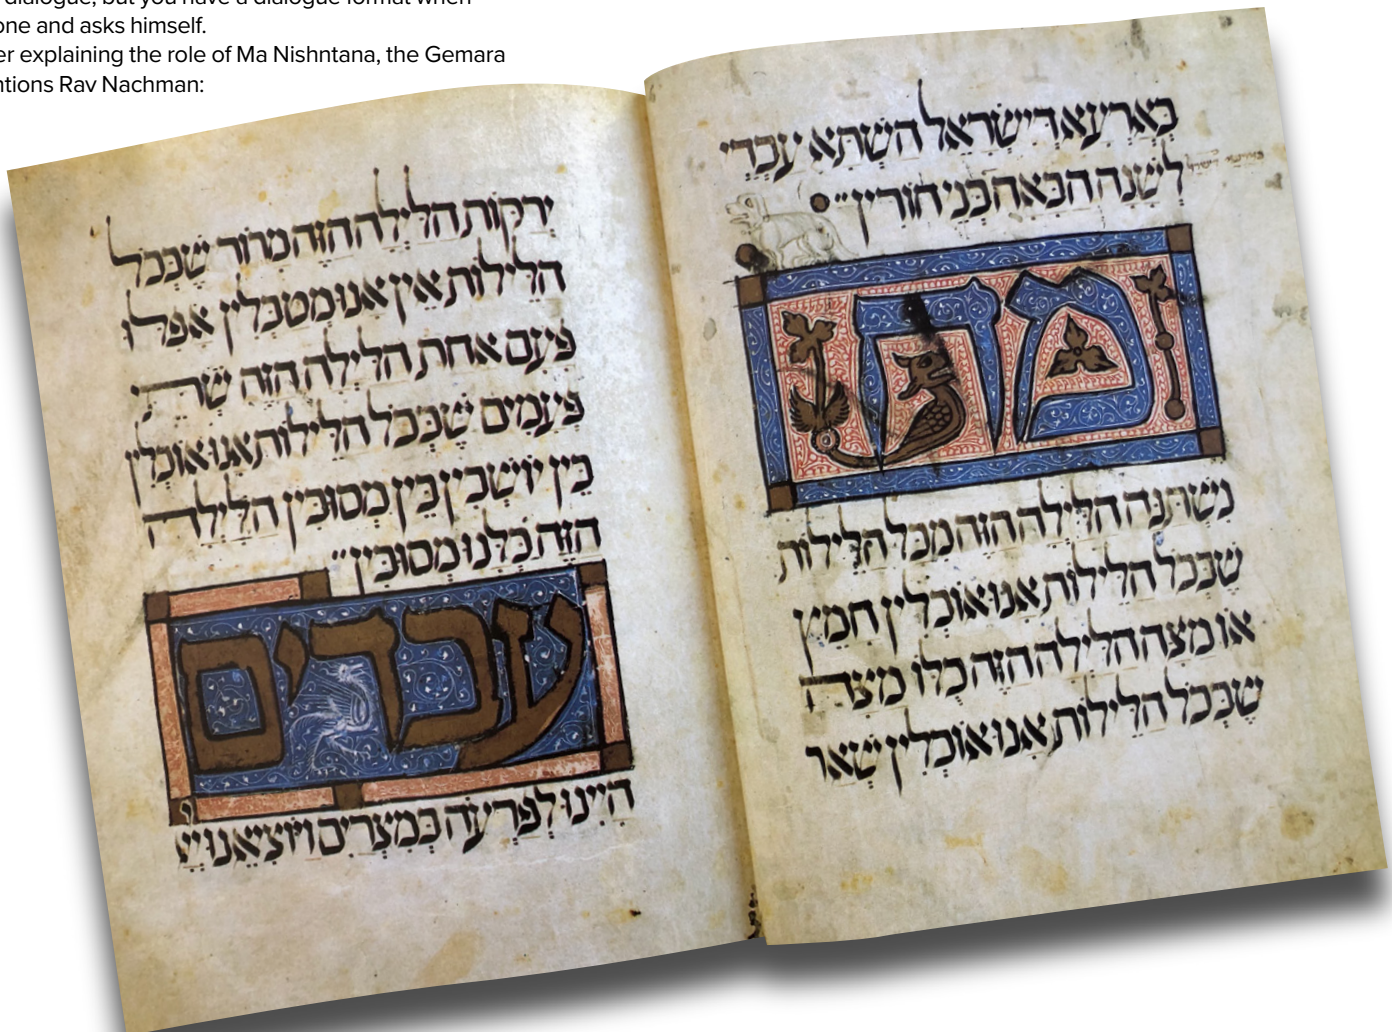 dialogue, but you have a dialogue format when
one and asks himself.
er explaining the role of Ma Nishntana, the Gemara
ntions Rav Nachman:
בארעא דישראל השתא עבדי
לשנה הבאה בני חורין"
מה
נשתנה הלילה הזה מכל הלילות
שבכל הלילות אנו אוכלין חמץ
או מצה הלילה הזה כלו מצה
שבכל הלילות אנו אוכלין שאר
ירקות הלילה הזה מרור שבכל
הלילות אין אנו מטבלין אפלו
פעם אחת הלילה הזה שתי
פעמים שבכל הלילות אנו אוכלין
בין יושבין בין מסובין הלילה
הזה כלנו מסובין"
עבדים
היינו לפרעה במצרים ויוציאנו ייי